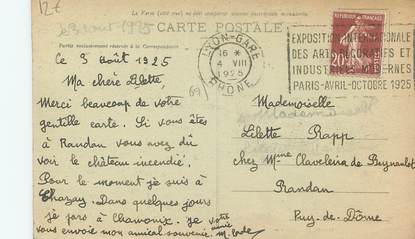 12€
La Carte
le 3 août 1925
CARTE POSTALE
Partie exclusivement réservée à la Correspondance
Ce 3 août 1925
Ma chère Lilette,
Merci beaucoup de votre
gentille carte. Si vous êtes
à Randan vous avez dû
voir le château incendié.
Pour le moment je suis à
Chazay. Dans quelques jours
je pars à Chamonix. Je
vous envoie mon amical souvenir. votre
amie
LYON-GARE
16 *
4 VIII
1925
RHONE
(69)
EXPOSITION INTERNATIONALE
DES ARTS DÉCORATIFS ET
INDUSTRIELS MODERNES
PARIS-AVRIL-OCTOBRE 1925
20
Mademoiselle
Lilette Rapp
chez Mme Claveleira de Buynault
Randan
Puy-de-Dôme